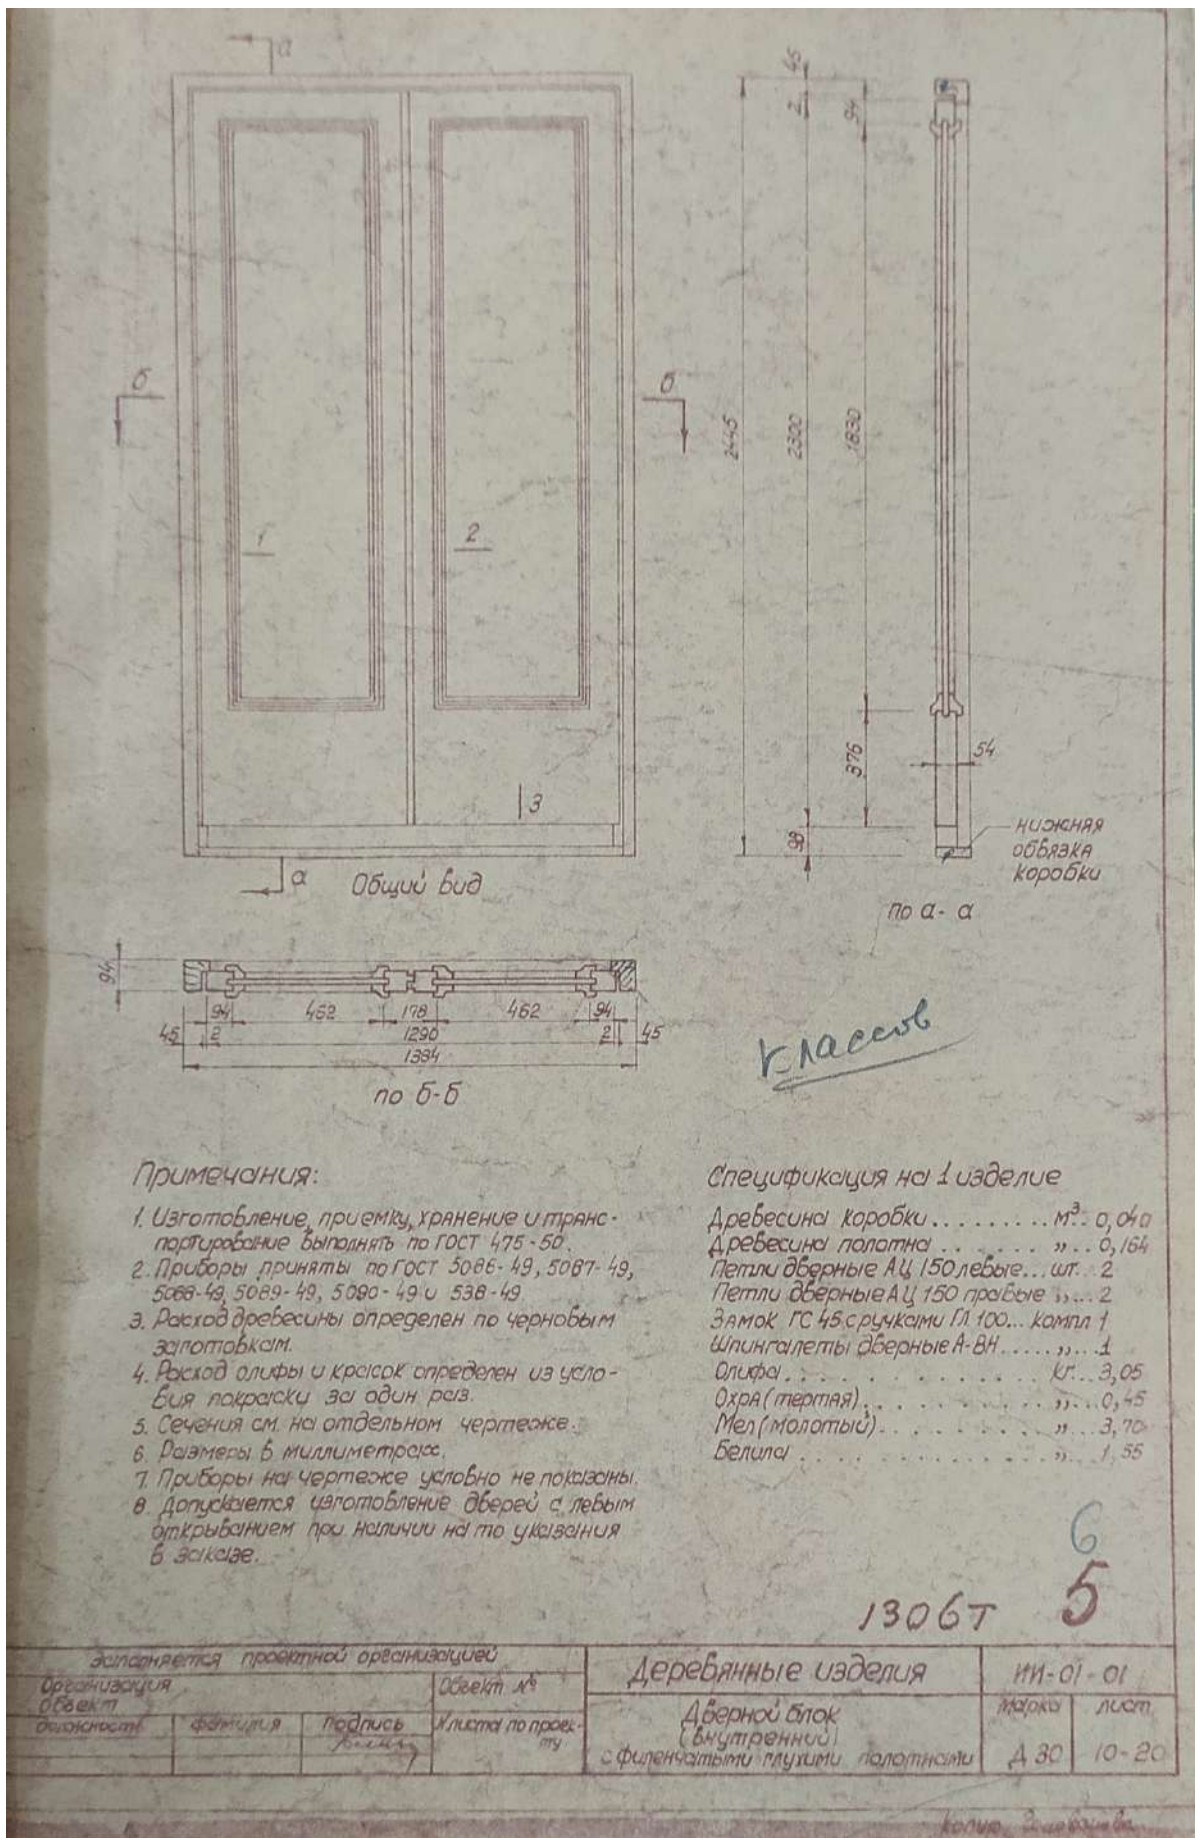 а
45
2
94
б
б
2445
2300
1830
1
2
376
54
3
98
нижняя
обвязка
коробки
а
Общий вид
по а-а
94
94
462
178
462
94
45
2
1290
2
45
1384
по б-б
Классов
Примечания:
1. Изготовление, приемку, хранение и транс-
портирование выполнять по ГОСТ 475-50.
2. Приборы приняты по ГОСТ 5086-49, 5087-49,
5088-49, 5089-49, 5090-49 и 538-49
3. Расход древесины определен по черновым
заготовкам.
4. Расход олифы и красок определен из усло-
вия покраски за один раз.
5. Сечения см. на отдельном чертеже.
6. Размеры в миллиметрах.
7. Приборы на чертеже условно не показаны.
8. Допускается изготовление дверей с левым
открыванием при наличии на то указания
в заказе.
Спецификация на 1 изделие
Древесина коробки........м³.. 0,040
Древесина полотна ....... „ .. 0,164
Петли дверные АЦ 150 левые... шт. 2
Петли дверные АЦ 150 правые „ ... 2
Замок ГС 45 с ручками ГЛ 100... компл 1
Шпингалеты дверные А-ВН..... „ ... 1
Олифа............. кг... 3,05
Охра (тертая)......... „ ... 0,45
Мел (молотый)......... „ ... 3,70
Белила ............. „ ... 1,55
6
1306т 5
Заполняется проектной организацией
Организация
Объект
Объект №
должность фамилия подпись
№ листа по проек-
ту
Деревянные изделия
ИИ-01-01
Дверной блок
(внутренний)
с филенчатыми глухими полотнами
Марка
лист
Д 30
10-20